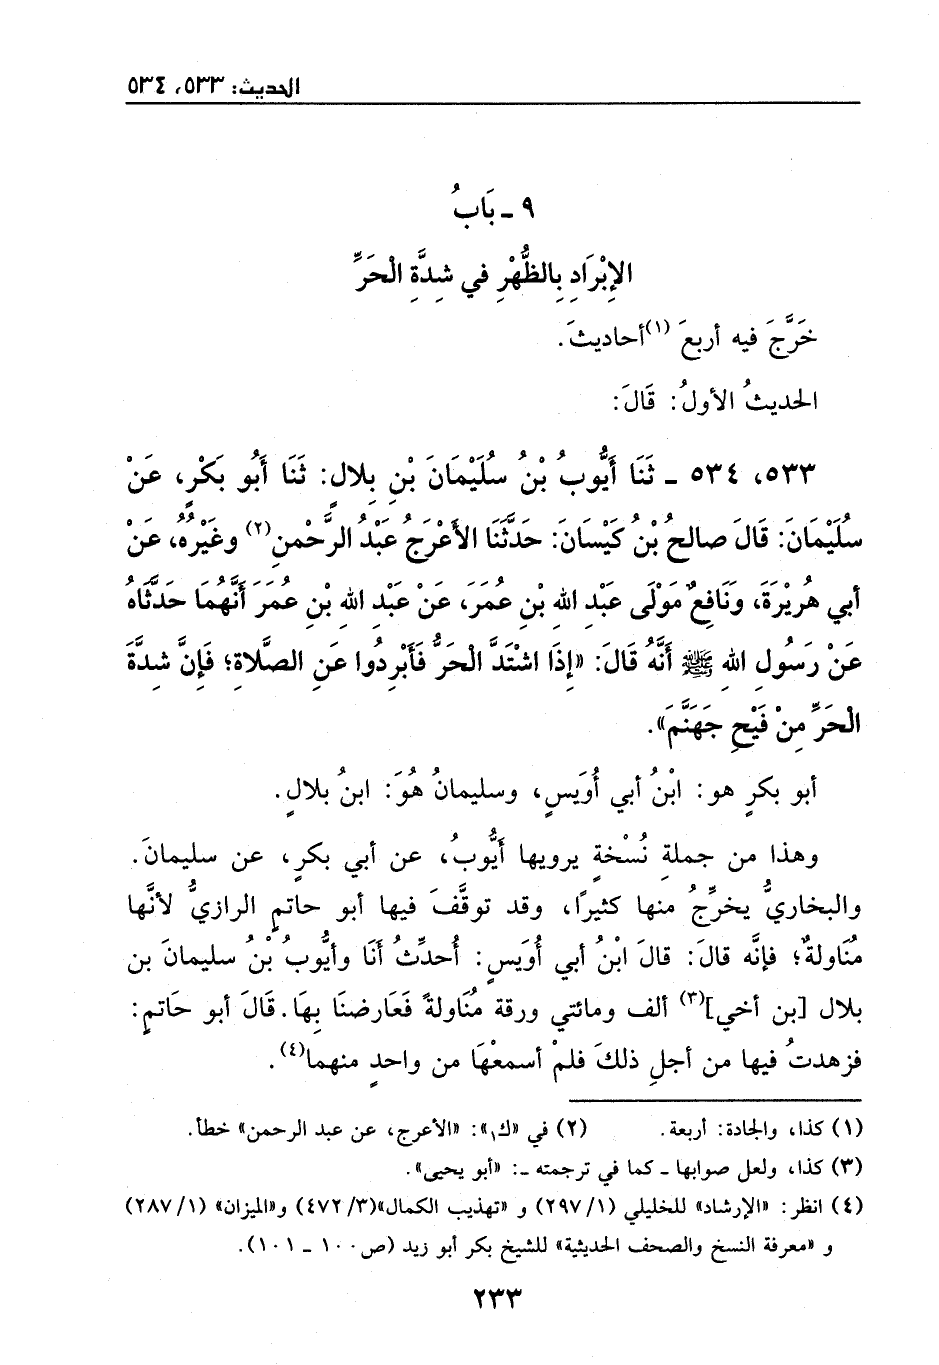 الحديث: ٥٣٣، ٥٣٤
٩ ـ بَابُ
الإِبْرَادِ بِالظُّهْرِ في شِدَّةِ الْحَرِّ
خَرَّجَ فيه أربعَ (١) أحاديثَ.
الحديثُ الأولُ: قَالَ:
٥٣٣، ٥٣٤ ـ ثَنَا أَيُّوبُ بْنُ سُلَيْمَانَ بْنِ بِلالٍ: ثَنَا أَبُو بَكْرٍ، عَنْ
سُلَيْمَانَ: قَالَ صالحُ بْنُ كَيْسَانَ: حَدَّثَنَا الأَعْرَجُ عَبْدُ الرَّحْمنِ (٢) وغَيْرُهُ، عَنْ
أبي هُرَيْرَةَ، ونَافِعٌ مَوْلَى عَبْدِ اللهِ بْنِ عُمَرَ، عَنْ عَبْدِ اللهِ بْنِ عُمَرَ أَنَّهُمَا حَدَّثَاهُ
عَنْ رَسُولِ اللهِ ﷺ أَنَّهُ قَالَ: «إِذَا اشْتَدَّ الْحَرُّ فَأَبْرِدُوا عَنِ الصَّلَاةِ؛ فَإِنَّ شِدَّةَ
الْحَرِّ مِنْ فَيْحِ جَهَنَّمَ».
أبو بكرٍ هو: ابْنُ أبي أُوَيسٍ، وسليمانُ هُوَ: ابنُ بلالٍ.
وهذا من جملةِ نُسْخةٍ يرويها أَيُّوبُ، عن أبي بكرٍ، عن سليمانَ.
والبخاريُّ يخرِّجُ منها كثيرًا، وقد توقَّفَ فيها أبو حاتمٍ الرازيُّ لأنَّها
مُنَاولةٌ؛ فإنَّه قالَ: قالَ ابْنُ أبي أُوَيسٍ: أُحدِّثُ أنَا وأيُّوبُ بْنُ سليمانَ بن
بلال [بن أخي] (٣) ألف ومائتي ورقة مُنَاولةً فَعَارضنَا بِهَا. قَالَ أبو حَاتمٍ:
فزهدتُ فيها من أجلِ ذلكَ فلمْ أسمعْهَا من واحدٍ منهما (٤).
(١) كذا، والجادة: أربعة. (٢) في «ك١»: «الأعرج، عن عبد الرحمن» خطأ.
(٣) كذا، ولعل صوابها ـ كما في ترجمته ـ: «أبو يحيى».
(٤) انظر: «الإرشاد» للخليلي (١/ ٢٩٧) و «تهذيب الكمال» (٣/ ٤٧٢) و«الميزان» (١/ ٢٨٧)
و «معرفة النسخ والصحف الحديثية» للشيخ بكر أبو زيد (ص١٠٠ ـ ١٠١).
٢٣٣